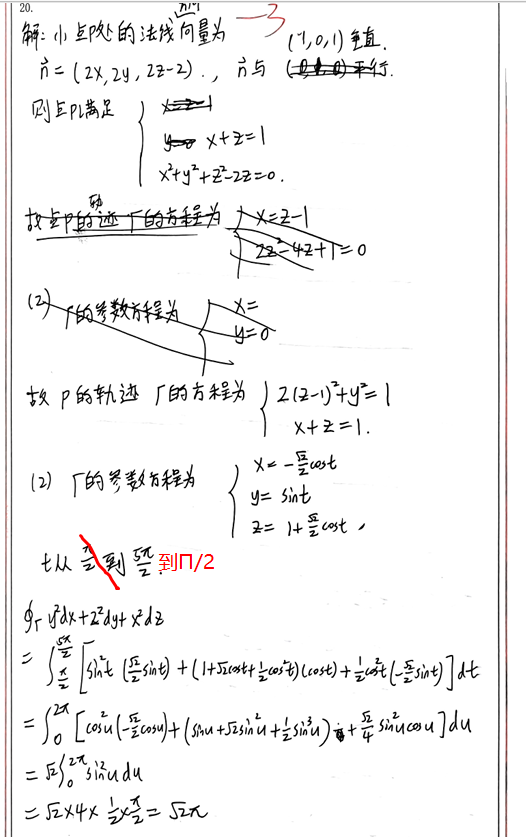 20.
解: 小点P处的法线向量为 -3
n⃗ = (2x, 2y, 2z-2). , n⃗与 (-1, 0, 1) 垂直.
则点P满足
x+z=1
x²+y²+z²-2z=0.
故点P的轨迹Γ的方程为 { x=z-1
2z²-4z+1=0
(2) Γ的参数方程为 { x=
y=0
故 P的轨迹 Γ的方程为 { 2(z-1)²+y²=1
x+z=1.
(2) Γ的参数方程为 { x= -√2/2 cost
y= sint
z= 1+√2/2 cost ,
t从 π/2 到 5π/2 . 到Π/2
∮Γ y²dx+z²dy+x²dz
= ∫_{π/2}^{5π/2} [sin²t (√2/2 sint) + (1+√2cost+1/2cos²t)(cost) + 1/2cos²t(-√2/2 sint)]dt
= ∫_0^{2π} [cos²u(-√2/2 cosu)+(sinu+√2sin²u+1/2sin³u) + √2/4 sin²u cosu]du
= √2∫_0^{2π} sin²u du
= √2×4×1/2×π/2 = √2π